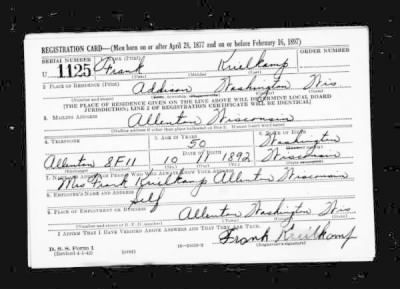 REGISTRATION CARD—(Men born on or after April 28, 1877 and on or before February 16, 1897)
SERIAL NUMBER 1. NAME (Print) ORDER NUMBER
U 1125 Frank Kreilkamp
(First) (Middle) (Last)
2. PLACE OF RESIDENCE (Print)
Addison Washington Wis
(Number and street) (Town, township, village, or city) (County) (State)
[THE PLACE OF RESIDENCE GIVEN ON THE LINE ABOVE WILL DETERMINE LOCAL BOARD
JURISDICTION; LINE 2 OF REGISTRATION CERTIFICATE WILL BE IDENTICAL]
3. MAILING ADDRESS
Allenton Wisconsin
[Mailing address if other than place indicated on line 2. If same insert word same]
4. TELEPHONE 5. AGE IN YEARS 6. PLACE OF BIRTH
50 Washington
DATE OF BIRTH
Allenton 8F11 10 11 1892 Wisconsin
(Exchange) (Number) (Mo.) (Day) (Yr.) (State or country)
7. NAME AND ADDRESS OF PERSON WHO WILL ALWAYS KNOW YOUR ADDRESS
Mrs Frank Kreilkamp Allenton Wisconsin
8. EMPLOYER'S NAME AND ADDRESS
Self
9. PLACE OF EMPLOYMENT OR BUSINESS
Allenton Washington Wis
(Number and street or R. F. D. number) (Town) (County) (State)
I AFFIRM THAT I HAVE VERIFIED ABOVE ANSWERS AND THAT THEY ARE TRUE.
Frank Kreilkamp
D. S. S. Form 1
(Revised 4-1-42) (over) (Registrant's signature)